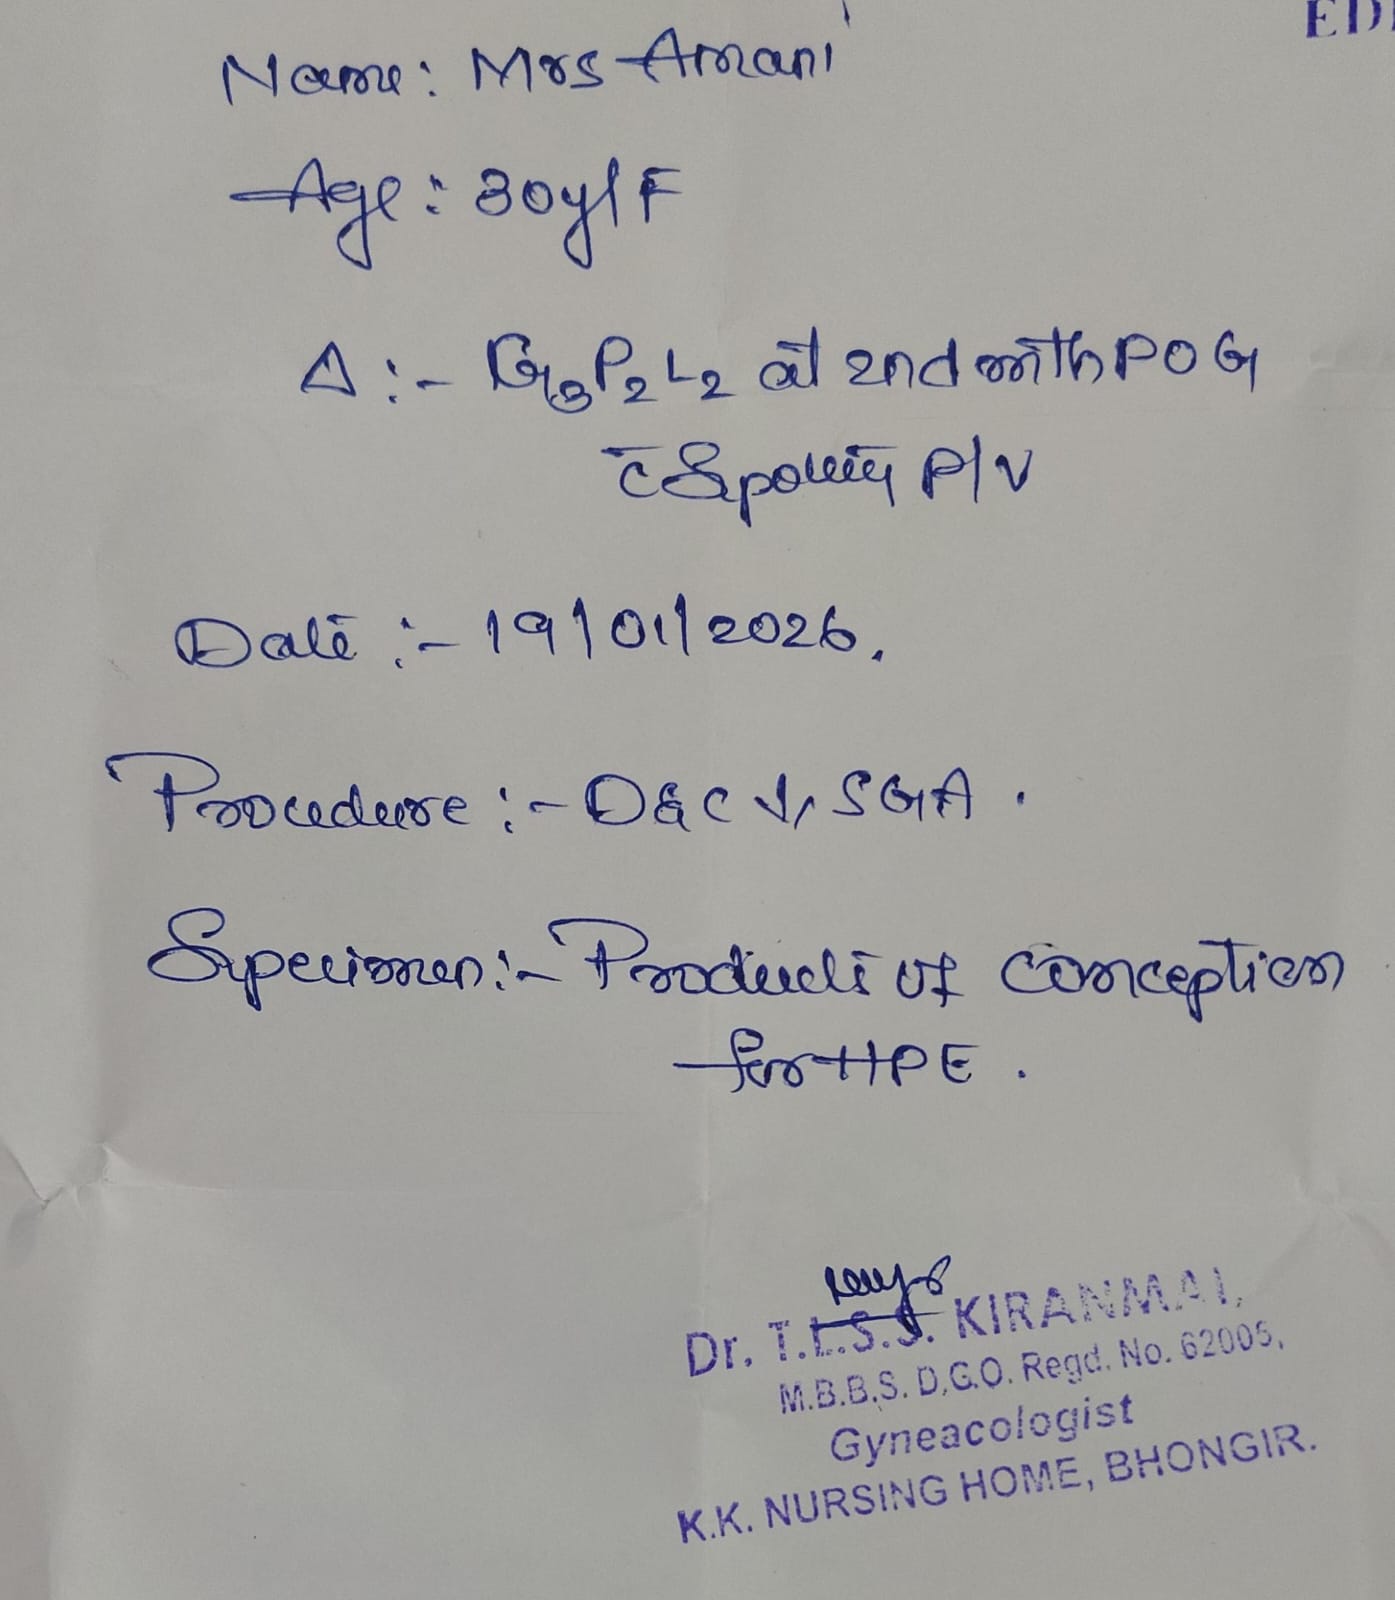 ED
Name: Mrs Amani
Age: 30y/F
Δ :- G3P2L2 at 2nd mnth POG
c̄ Spotting P/V
Date :- 19/01/2026.
Procedure :- D&C ↓ SGA.
Specimen :- Products of conception
for HPE.
Dr. T.L.S.S. KIRANMAI,
M.B.B.S. D.G.O. Regd. No. 62005,
Gyneacologist
K.K. NURSING HOME, BHONGIR.